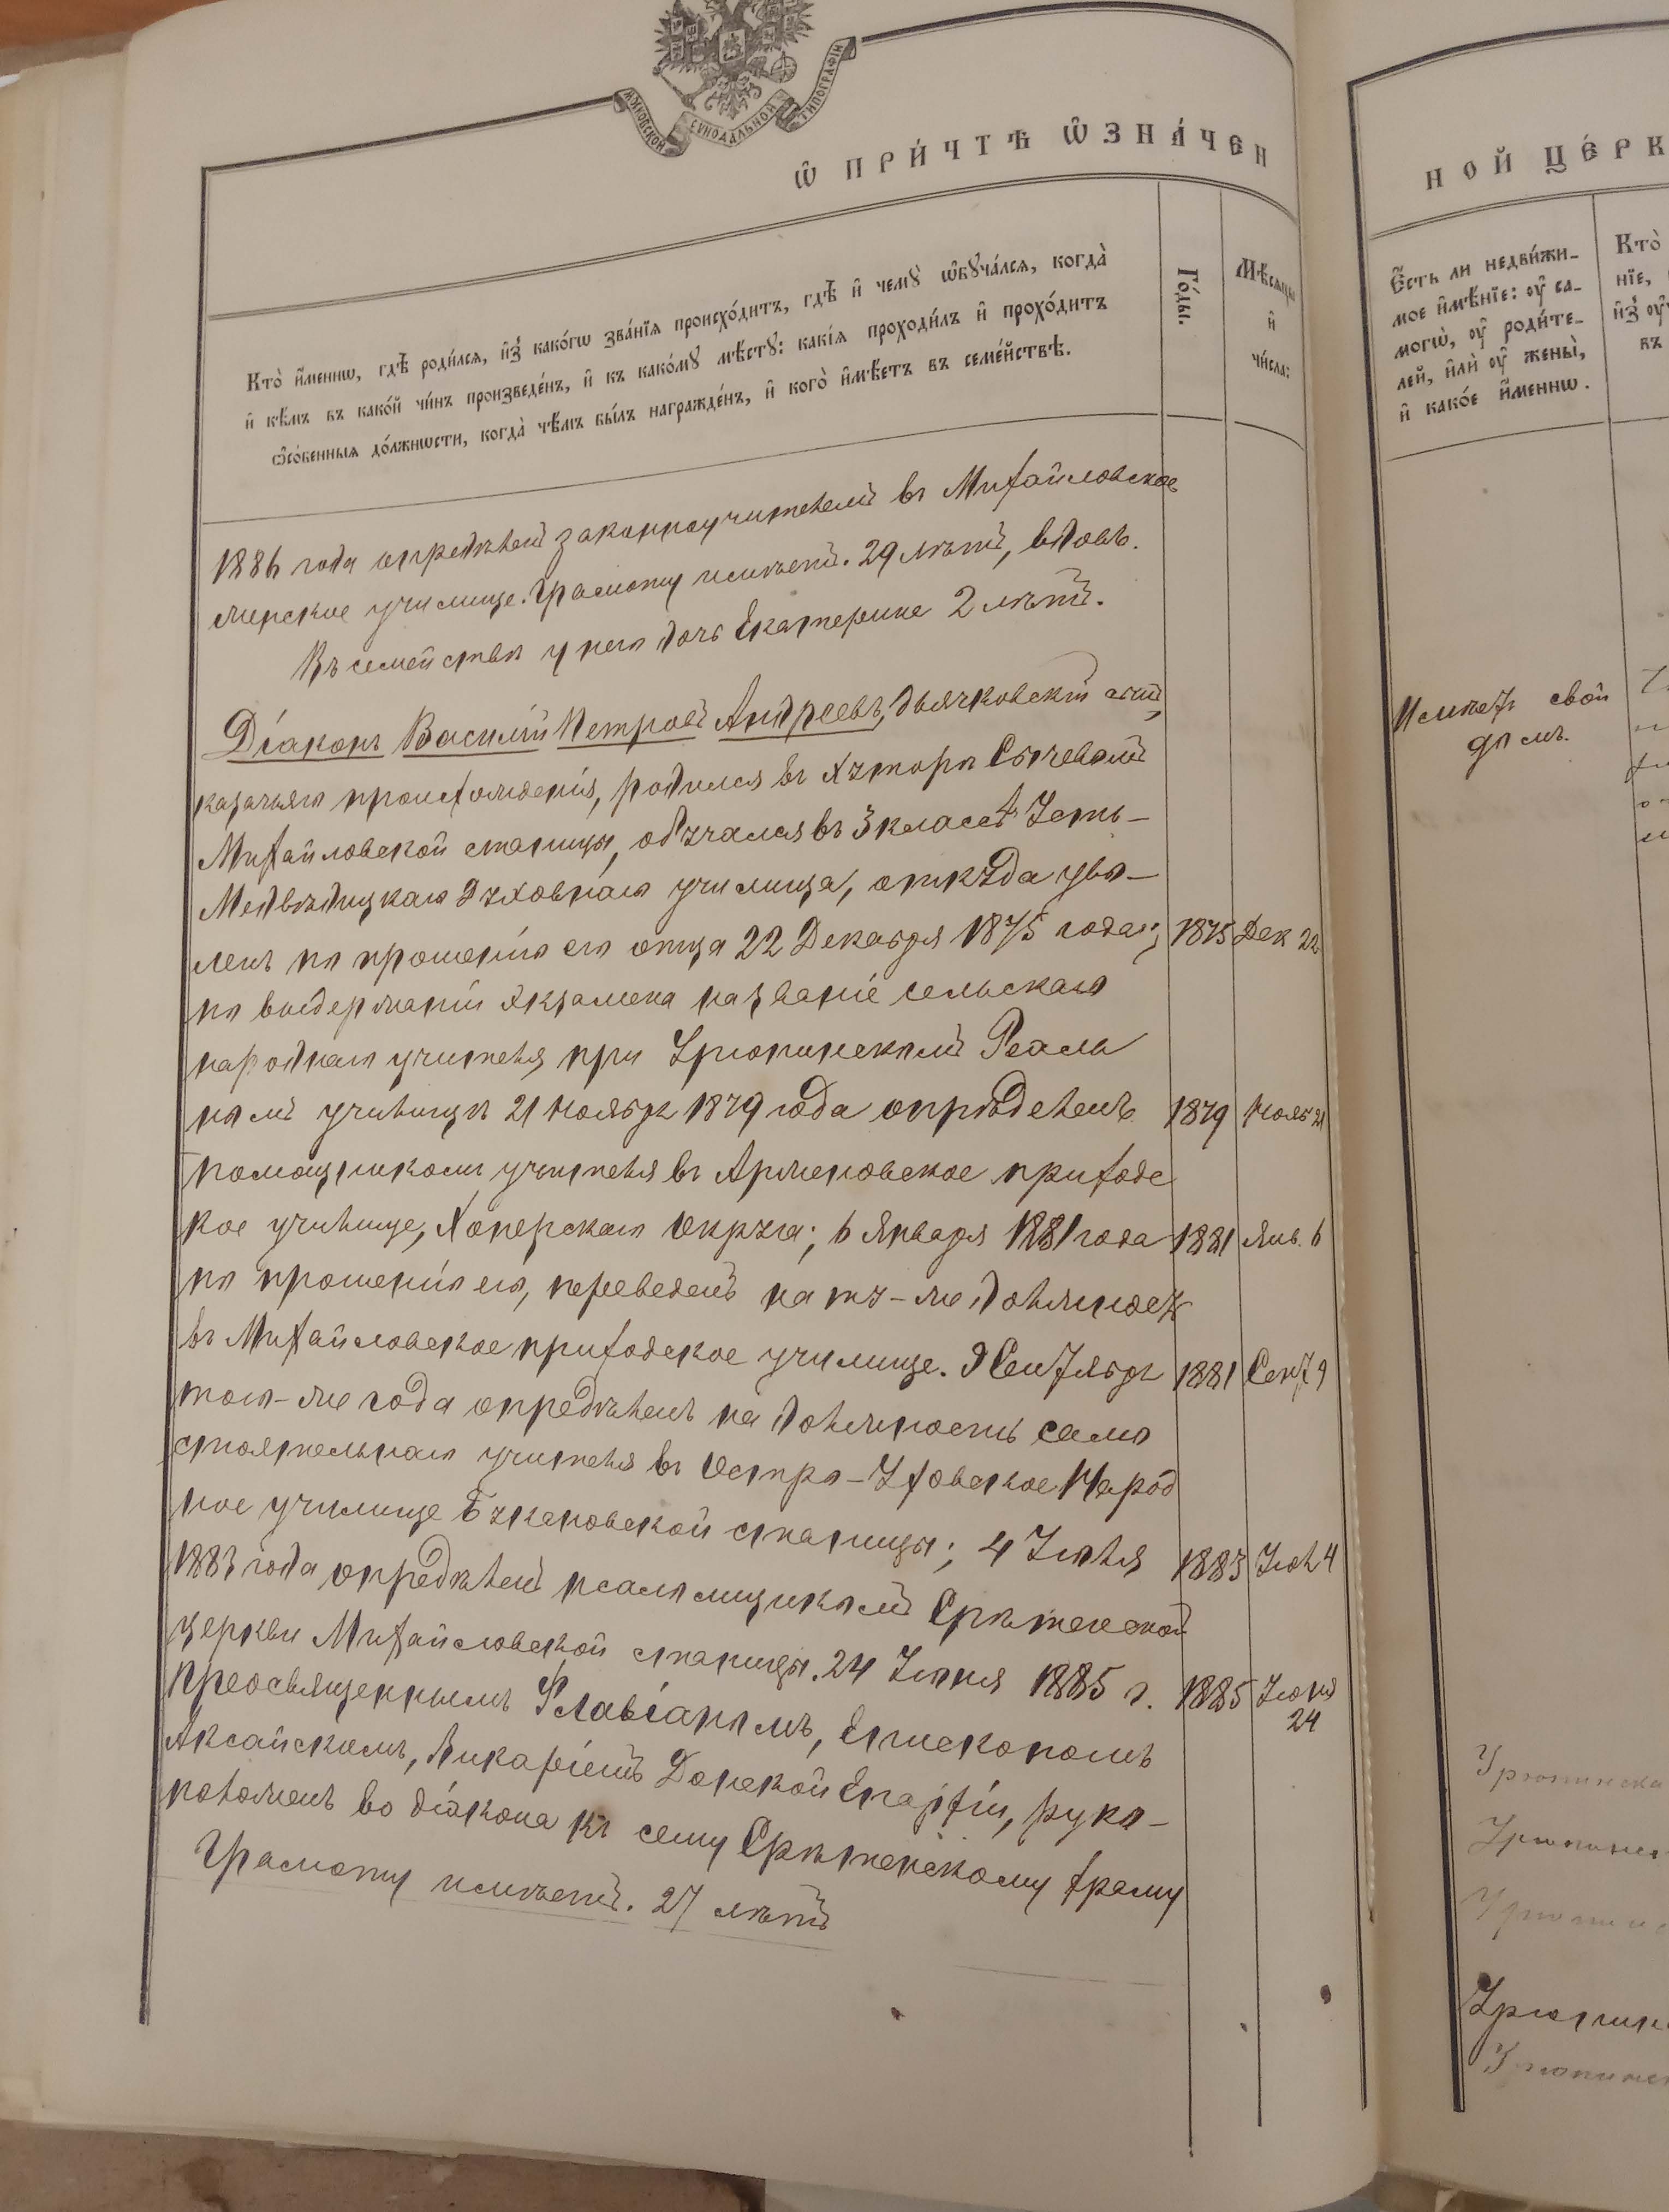 МОСКОВСКОЙ СѴНОДАЛЬНОЙ ТИПОГРАФІИ
Ѡ҆ ПРИ́ЧТѢ Ѡ҆ЗНА́ЧЕН
Кто̀ и҆́меннѡ, гдѣ̀ роди́лся, и҆з̾ како́гѡ зва́нїѧ происхо́дитъ, гдѣ̀ и҆ чемꙋ̀ ѡ҆бꙋча́лсѧ, когда̀
и҆ кѣ́мъ въ како́й чи́нъ произведе́нъ, и҆ къ како́мꙋ мѣ́стꙋ: какі́ѧ проходи́лъ и҆ прохо́дитъ
ѡ҆со́бенныѧ до́лжнѡсти, когда̀ чѣ́мъ бы́лъ награжде́нъ, и҆ кого̀ и҆мѣ́етъ въ семе́йствѣ.
Го́ды.
Мѣ́сѧцы
и҆
чи́сла:
1886 года опредѣленъ законоучителемъ въ Михайловское
училище. Грамоту имѣетъ. 29 лѣтъ, вдовъ.
Въ семействѣ у него дочь Екатерина 2 лѣтъ.
Діаконъ Василій Петровъ Андреевъ, дьячковскій сынъ,
казачьяго происхожденія, родился въ хуторѣ Сычевомъ
Михайловской станицы, обучался въ 3 классѣ Усть-
Медвѣдицкаго Духовнаго училища, откуда уво-
ленъ по прошенію его отца 22 Декабря 1875 года; 1875 Дек 22
по выдержаніи экзамена на званіе сельскаго
народнаго учителя при Урюпинскомъ Реаль
номъ училищѣ 21 Ноября 1879 года опредѣленъ 1879 Нояб 21
помощникомъ учителя въ Арженовское приходс
кое училище, Хоперскаго Округа; 6 Января 1881 года 1881 Янв. 6
по прошенію его, переведенъ на ту-же должность
въ Михайловское приходское училище. 9 Сентября 1881 Сент 9
того-же года опредѣленъ на должность само
стоятельнаго учителя въ Остро-Уховское Народ
ное училище Букановской станицы; 4 Іюля 1883 Іюл 4
1883 года опредѣленъ псаломщикомъ Срѣтенской
церкви Михайловской станицы. 24 Іюня 1885 г. 1885 Іюня
24
Преосвященнымъ Флавіаномъ, Епископомъ
Аксайскимъ, Викаріемъ Донской Епархіи, руко-
положенъ во діакона къ сему Срѣтенскому храму
Грамоту имѣетъ. 27 лѣтъ
НОЙ ЦЕ́РК
Е҆́сть ли недви́жи-
мое и҆мѣ́нїе: оу҆ са-
могѡ̀, оу҆ роди́те-
лей, и҆лѝ оу҆ жены̀,
и҆ како́е и҆́меннѡ.
Кто̀
нїе,
и҆з̾
въ
Имѣетъ свой
домъ.
Урюпинска